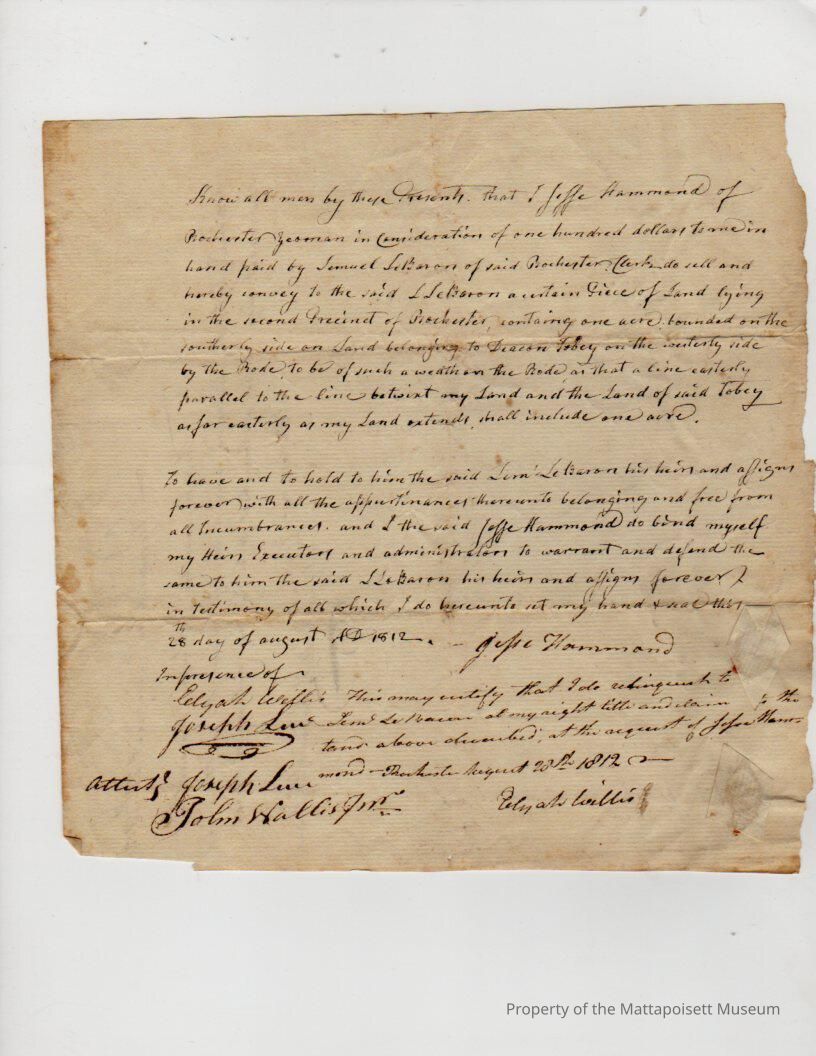 Know all men by these Presents. that I Jesse Hammond of
Rochester Yeoman in Consideration of one hundred dollars to me in
hand paid by Lemuel LeBaron of said Rochester, Clerk do sell and
hereby convey to the said L LeBaron a certain Piece of Land lying
in the second Precinct of Rochester, containg one acre. bounded on the
southerly side on Land belonging to Deacon Tobey on the westerly side
by the Rode, to be of such a weadth on the Rode, as that a line easterly
parallel to the line betwixt my Land and the Land of said Tobey
as far easterly as my Land extends, shall include one acre.
To have and to hold to him the said Leml LeBaron his heirs and assigns
forever with all the appurtinances thereunto belonging and free from
all Incumbrances. and I the said Jesse Hammond do bind myself
my Heirs Executors and administrators to warrant and defend the
same to him the said L LeBaron his heirs and assigns forever
in testimony of all which I do hereunto set my hand & seal this
28th day of august AD 1812. - Jesse Hammond
In presence of
Elijah Willis
Joseph
This may certify that I do relinquish to
Leml LeBaron al my right title and claim to the
land above described, at the request of Jesse Ham-
mond - Rochester August 28th 1812
Elijah Willis
Attest Joseph
John Wallis Jnr
Property of the Mattapoisett Museum